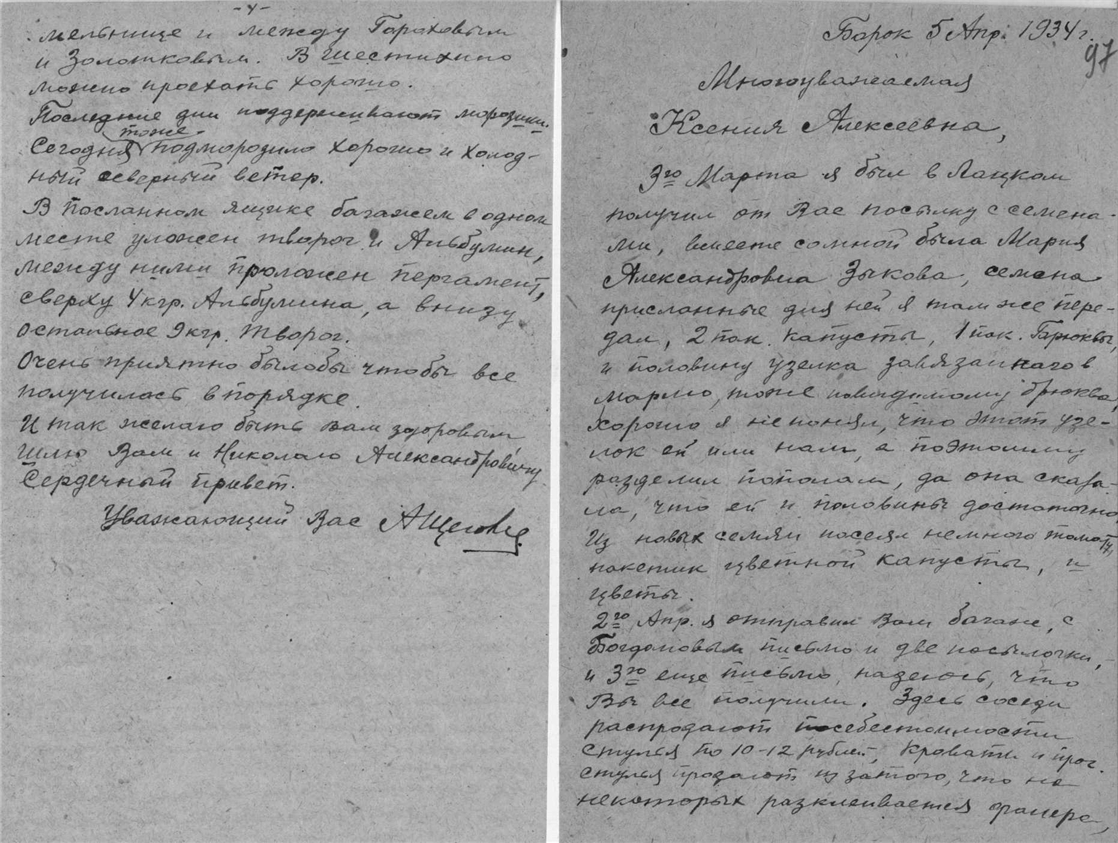 -4-
мельнице и между Гараховым
и Золотковым. В Шестихино
можно проехать хорошо.
Последние дни поддерживают морозици.
тоже
Сегодня подмородило хорошо и холод-
ный северный ветер.
В посланном ящике багажем в одном
месте уложен творог и Альбумин,
между ними проложен пергамент,
сверху 4 кгр. Альбумина, а внизу
остальное 9 кгр. творог.
Очень приятно былобы чтобы все
получилось в порядке.
И так желаю быть Вам здоровым
шлю Вам и Николаю Александровичу
Сердечный привет.
Уважающий Вас А Щего
Борок 5 Апр. 1934 г.
97
Многоуважаемая
Ксения Алексеевна,
3го Марта я был в Лацком
получил от Вас посылку с семена-
ми, вместе сомной была Мария
Александровна Зыкова, семена
присланные для ней я там же пере-
дал, 2 пак. капусты, 1 пак. Брюквы,
и половину узелка завязаннаго в
марлю, тоже повидимому брюква
хорошо я не понял, что этот узе-
лок ей или нам, а поэтому
разделил пополам, да она сказа-
ла, что ей и половины достаточно
Из новых семян посеял немного томат,
пакетик цветной капусты, и
цветы.
2го Апр. я отправил Вам багаж, с
Богдановым письмо и две посылочки,
и 3го еще письмо, надеюсь, что
Вы все получили. Здесь соседи
распродают посебестоимости
стулья по 10-12 рублей, кровати и проч.
стулья продают из затого, что на
некоторых расклеивается фанера,